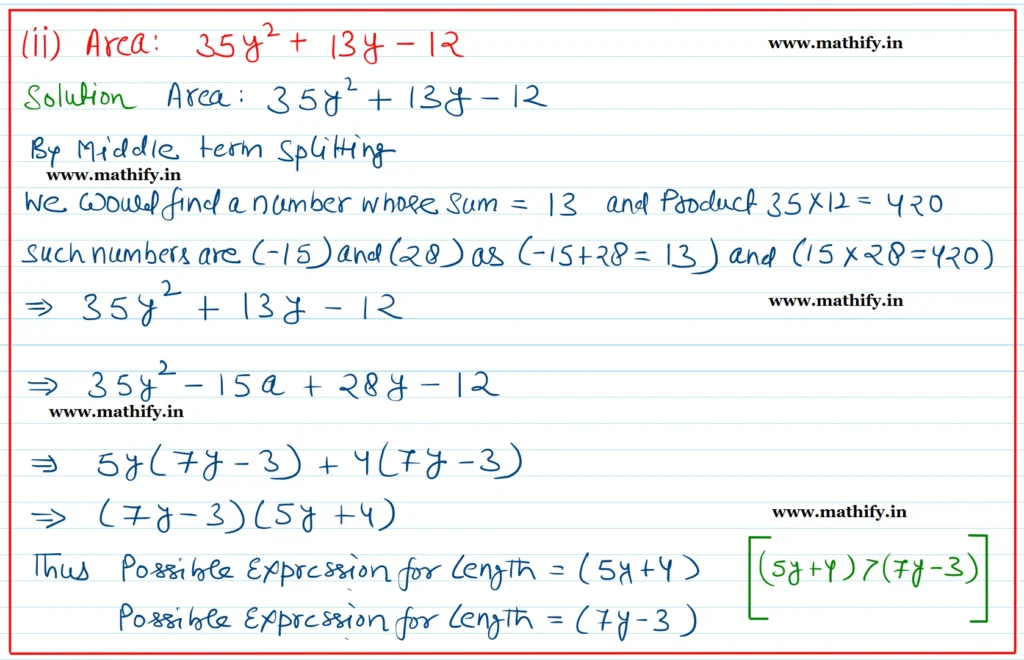 (ii) Area: 35y² + 13y - 12
www.mathify.in
Solution Area: 35y² + 13y - 12
By Middle term Splitting
www.mathify.in
We would find a number whose sum = 13 and Product 35×12 = 420
such numbers are (-15) and (28) as (-15+28 = 13) and (15 × 28 = 420)
⇒ 35y² + 13y - 12
www.mathify.in
⇒ 35y² - 15a + 28y - 12
www.mathify.in
⇒ 5y(7y - 3) + 4(7y - 3)
⇒ (7y - 3)(5y + 4)
www.mathify.in
Thus Possible Expression for Length = (5y+4) [(5y+4) > (7y-3)]
Possible Expression for Length = (7y-3)